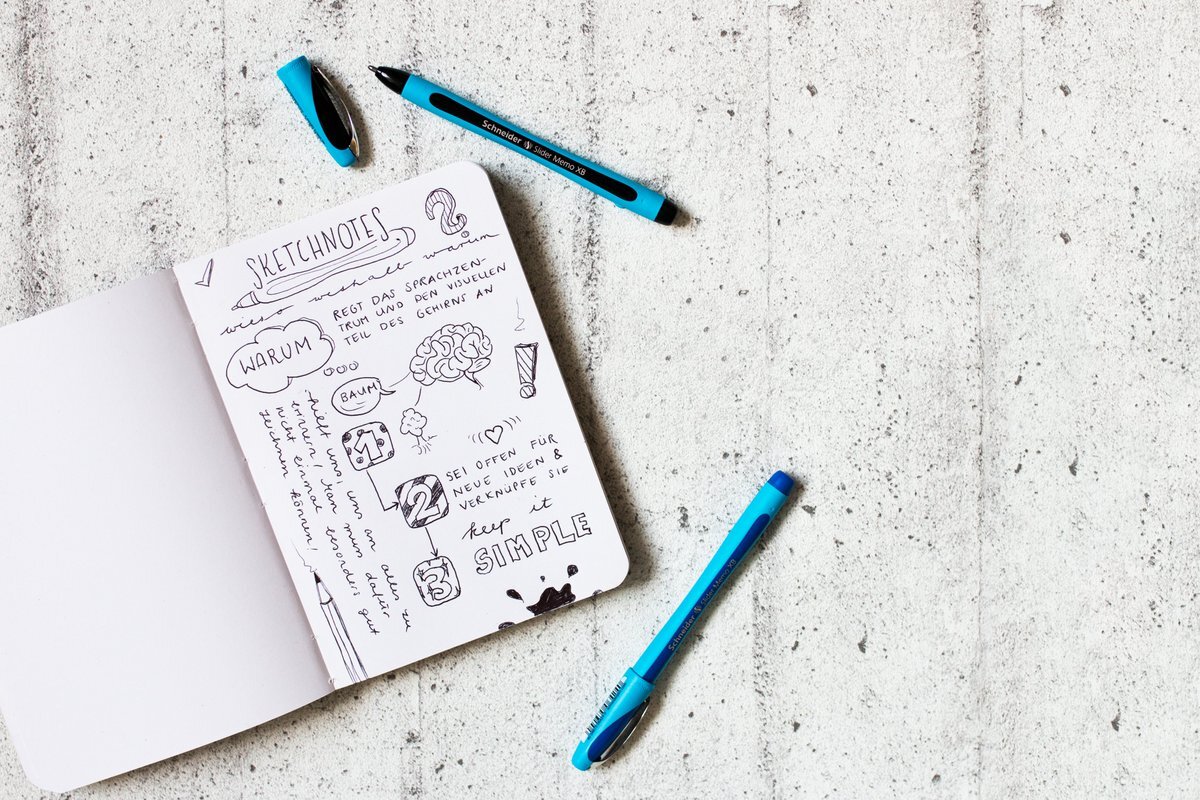 SKETCHNOTES
?
wieso weshalb warum
REGT DAS SPRACHZEN-
TRUM UND DEN VISUELLEN
TEIL DES GEHIRNS AN
WARUM
!
BAUM
1
hilft uns, uns an alles zu
erinnern! Man muss dafür
nicht einmal besonders gut
zeichnen können!
2
SEI OFFEN FÜR
NEUE IDEEN &
VERKNÜPFE SIE
keep it
SIMPLE
3
Schneider Slider Memo XB
Schneider Slider Memo XB